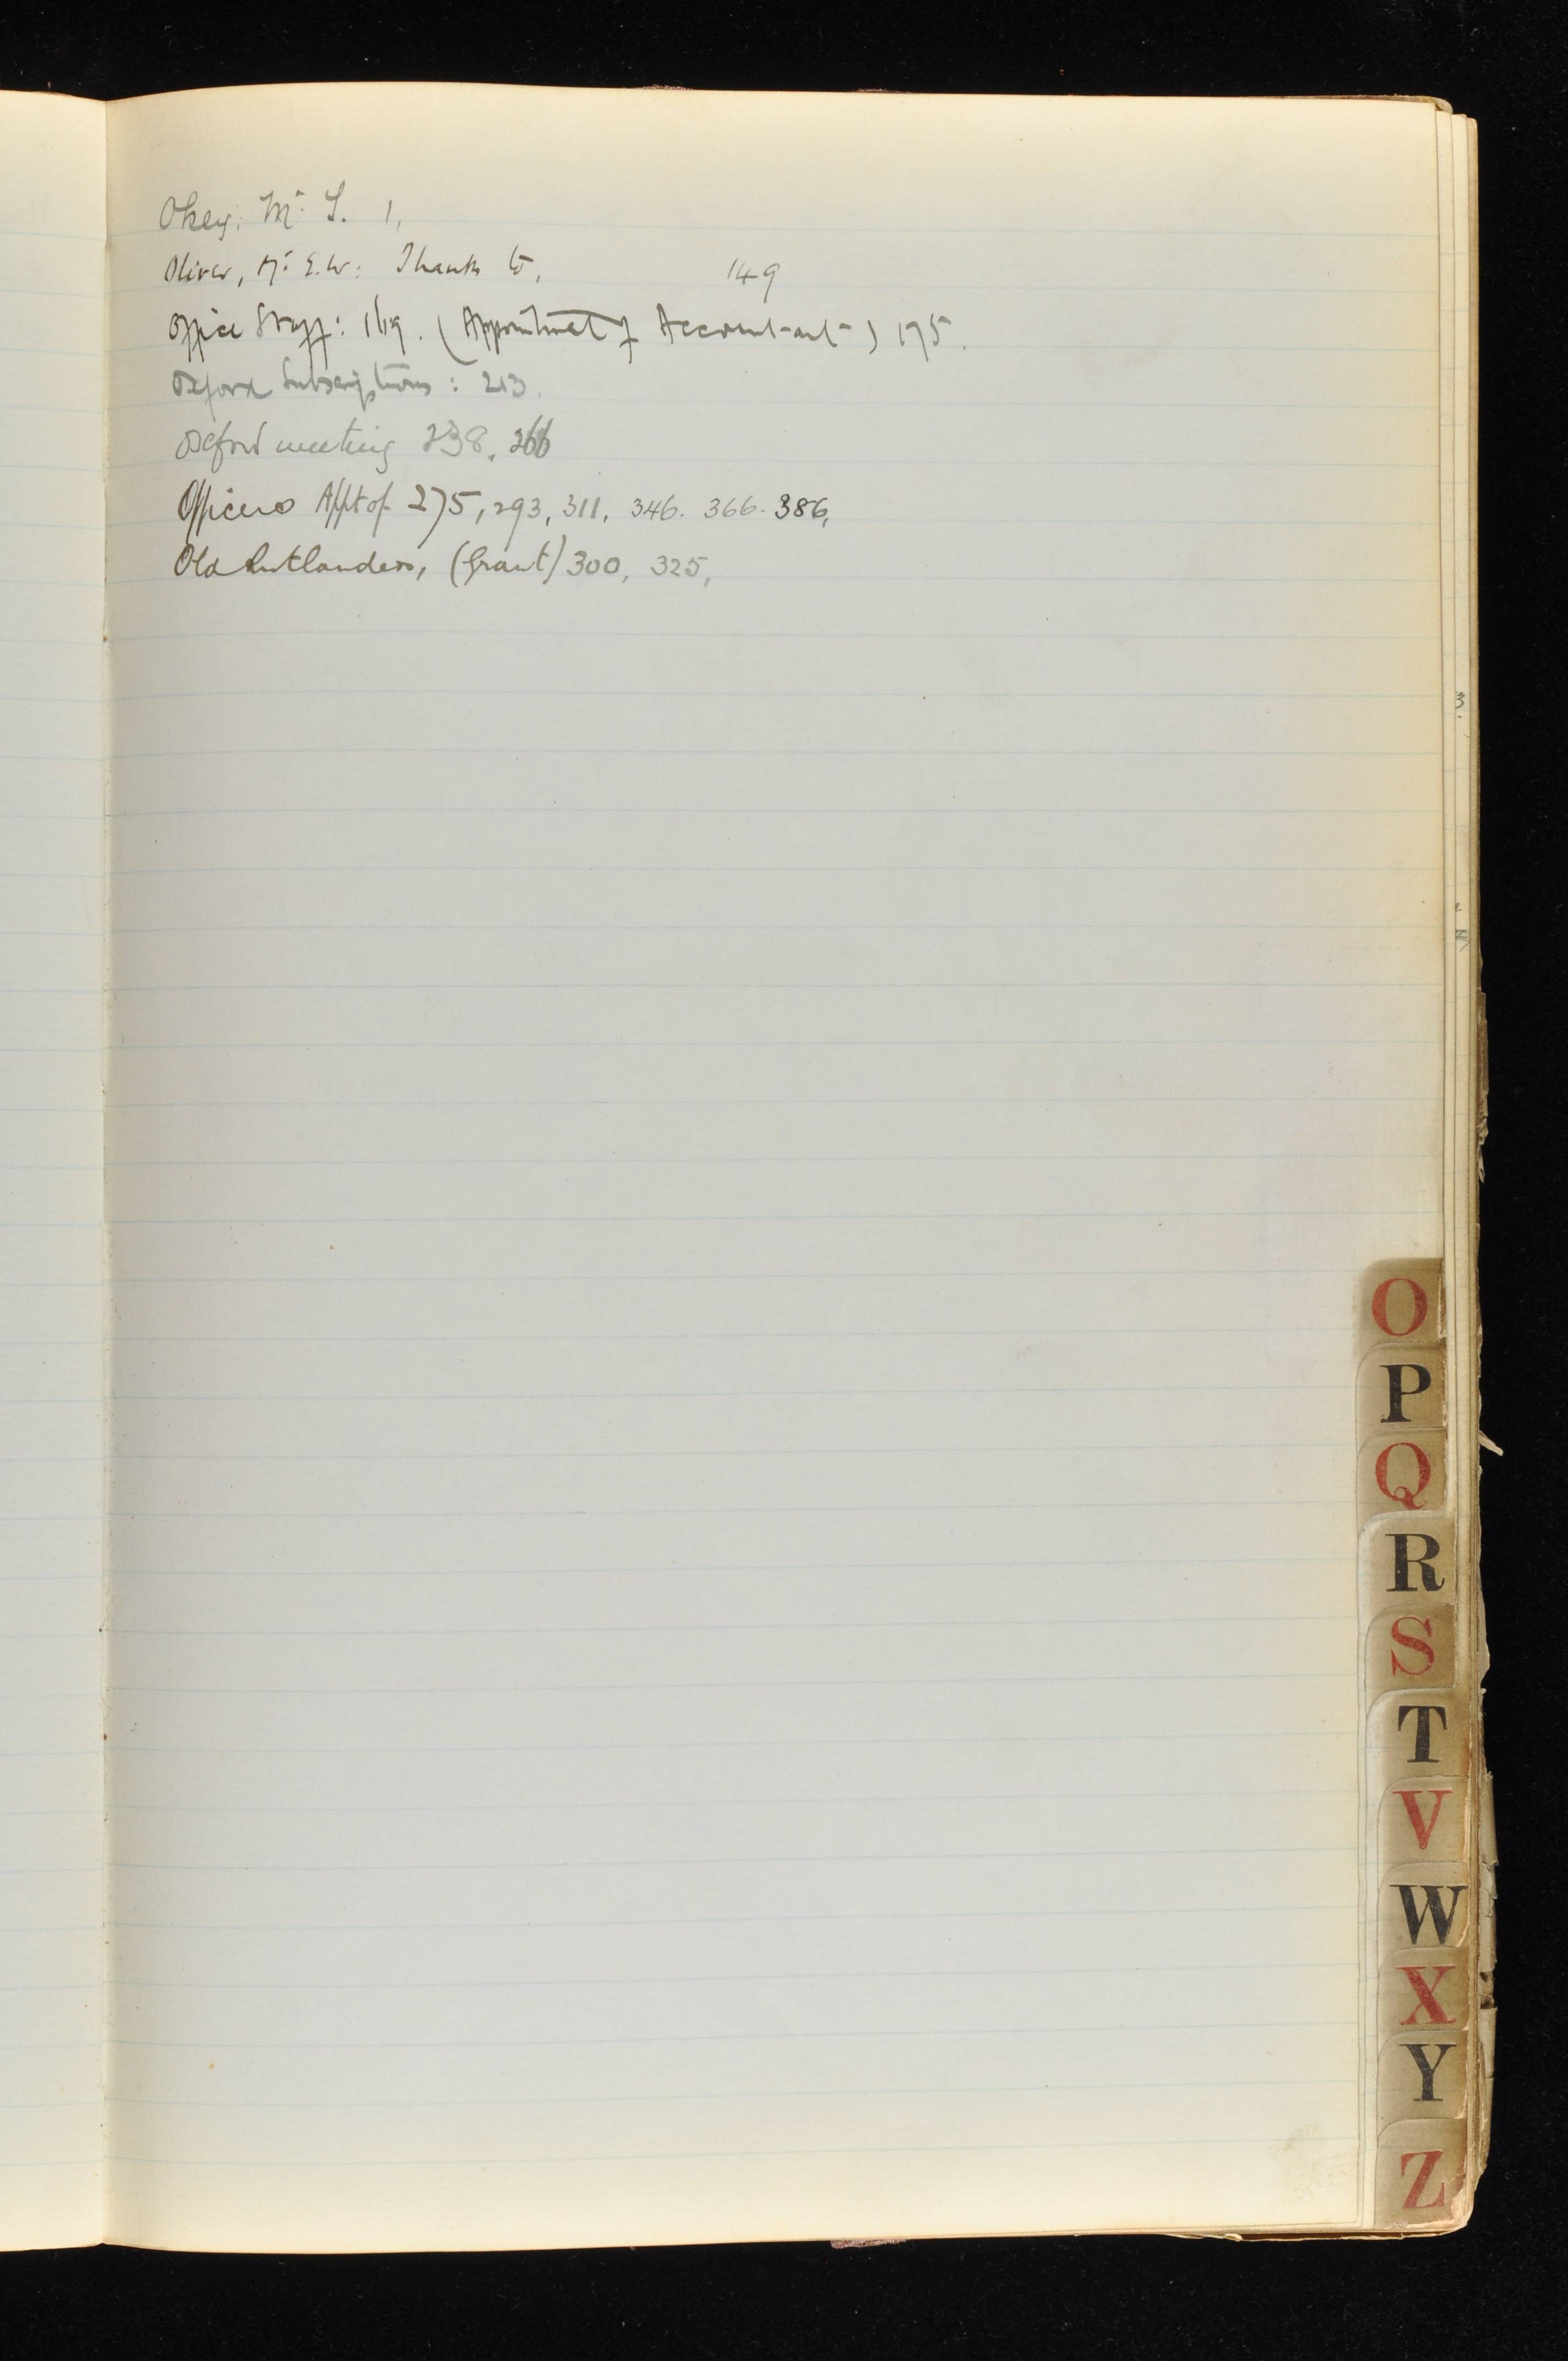 Okey, Mr. T. 1,
Oliver, Mr. E.W: Thanks to, 149
Office Staff: 169. (Appointment of Accountant) 175.
Oxford Subscriptions: 213.
Oxford meeting 238, 266
Officers Appt of 275, 293, 311, 346. 366. 386,
Old Rutlanders, (Grant) 300, 325,
O
P
Q
R
S
T
V
W
X
Y
Z